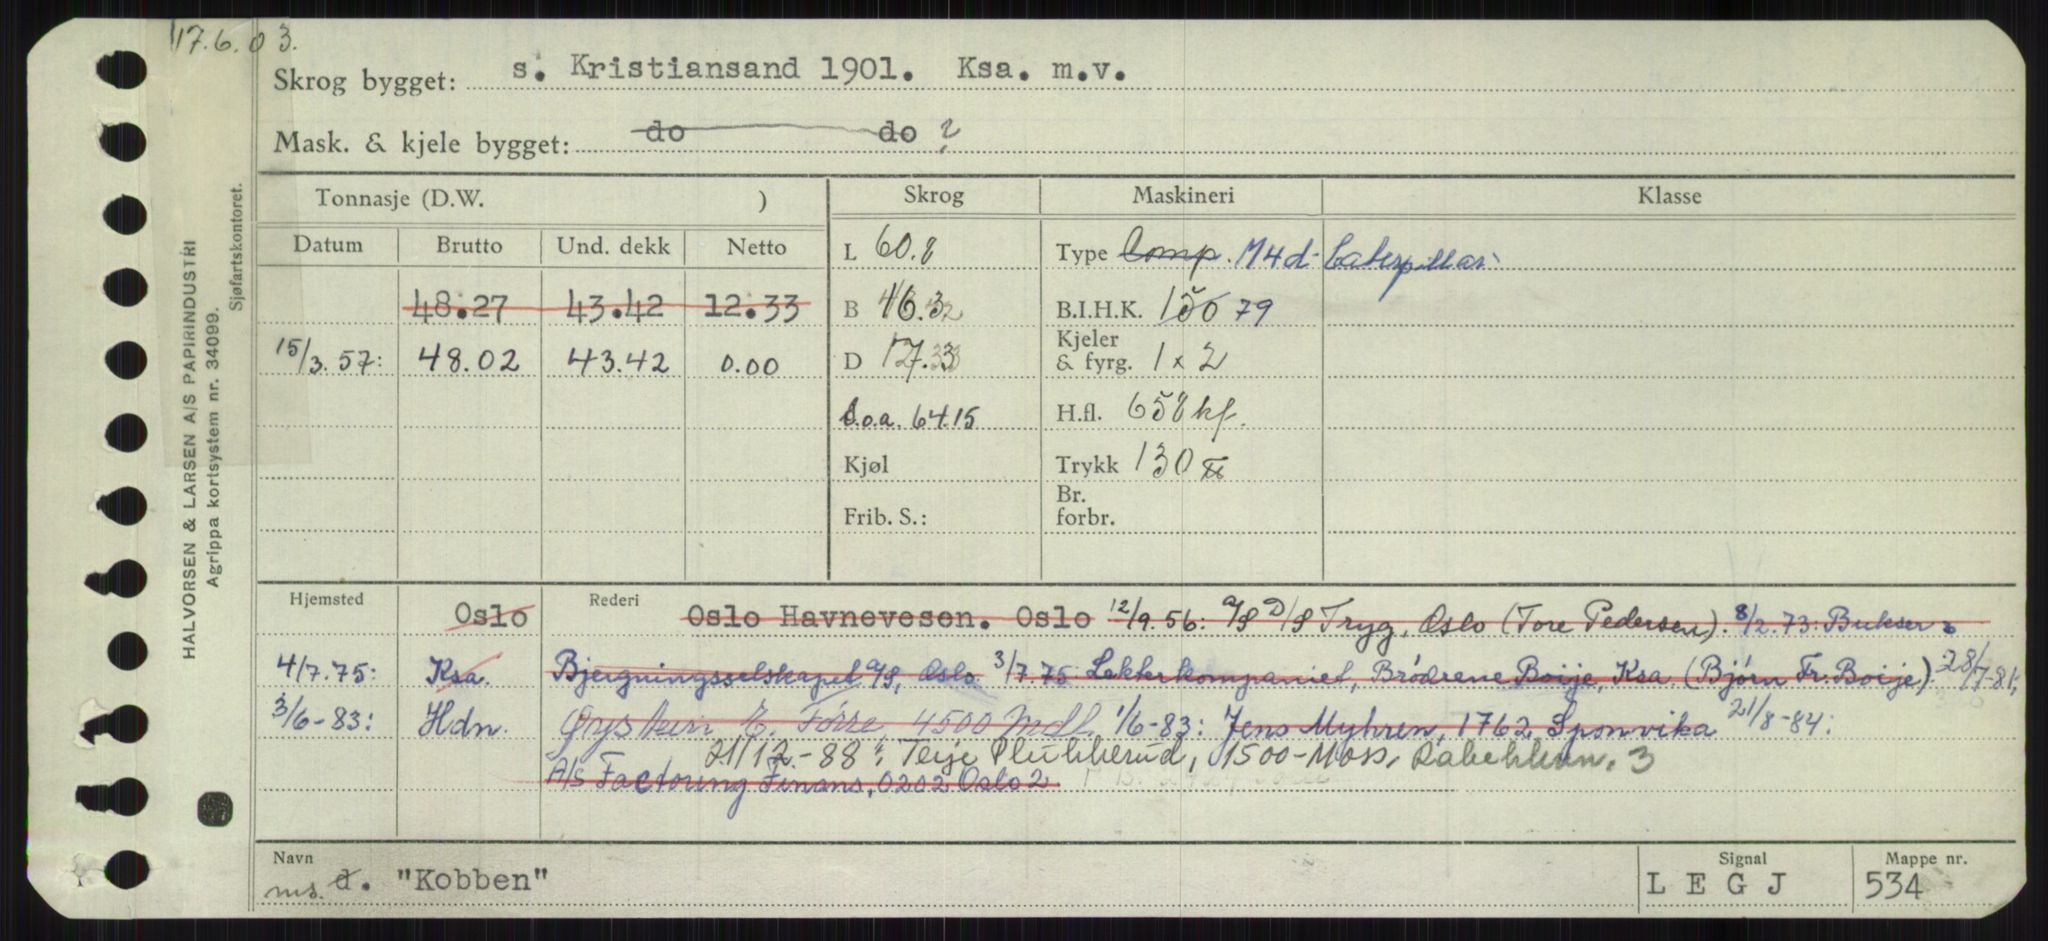 17.6.03.
Skrog bygget: s. Kristiansand 1901. Ksa. m.v.
Mask. & kjele bygget: do do ?
HALVORSEN & LARSEN A/S PAPIRINDUSTRI
Agrippa kortsystem nr. 34099.
Sjøfartskontoret.
Tonnasje (D.W. ) Skrog Maskineri Klasse
Datum Brutto Und. dekk Netto L 60.8 Type Comp. M4d- Caterpillar
48.27 43.42 12.33 B 16.32 B.I.H.K. 150 79
15/3.57: 48.02 43.42 0.00 D Kjeler & fyrg. 1 x 2
L.o.a. 64.15 H.fl. 658 kf.
Kjøl Trykk 130
Frib. S.: Br. forbr.
Hjemsted Oslo Rederi Oslo Havnevesen. Oslo 12/9.56: A/S D/S Tryg, Oslo (Tore Pedersen). 8/2.73: Bukser
4/7.75: Ksa. Bjergningsselskapet A/S, Oslo. 3/7.75: Lekterkompaniet, Brødrene Boije, Ksa. (Bjørn Fr. Boije). 28/7-81,
3/6-83: Hdn. E. 4500 Mdl. 1/6-83: Jens Myhren, 1762 Sponvika 21/8-84:
21/12-88: Terje 1500-Moss, 3
A/S Factoring Finans, 0202 Oslo 2.
Navn Signal Mappe nr.
ms. d. "Kobben" L E G J 534